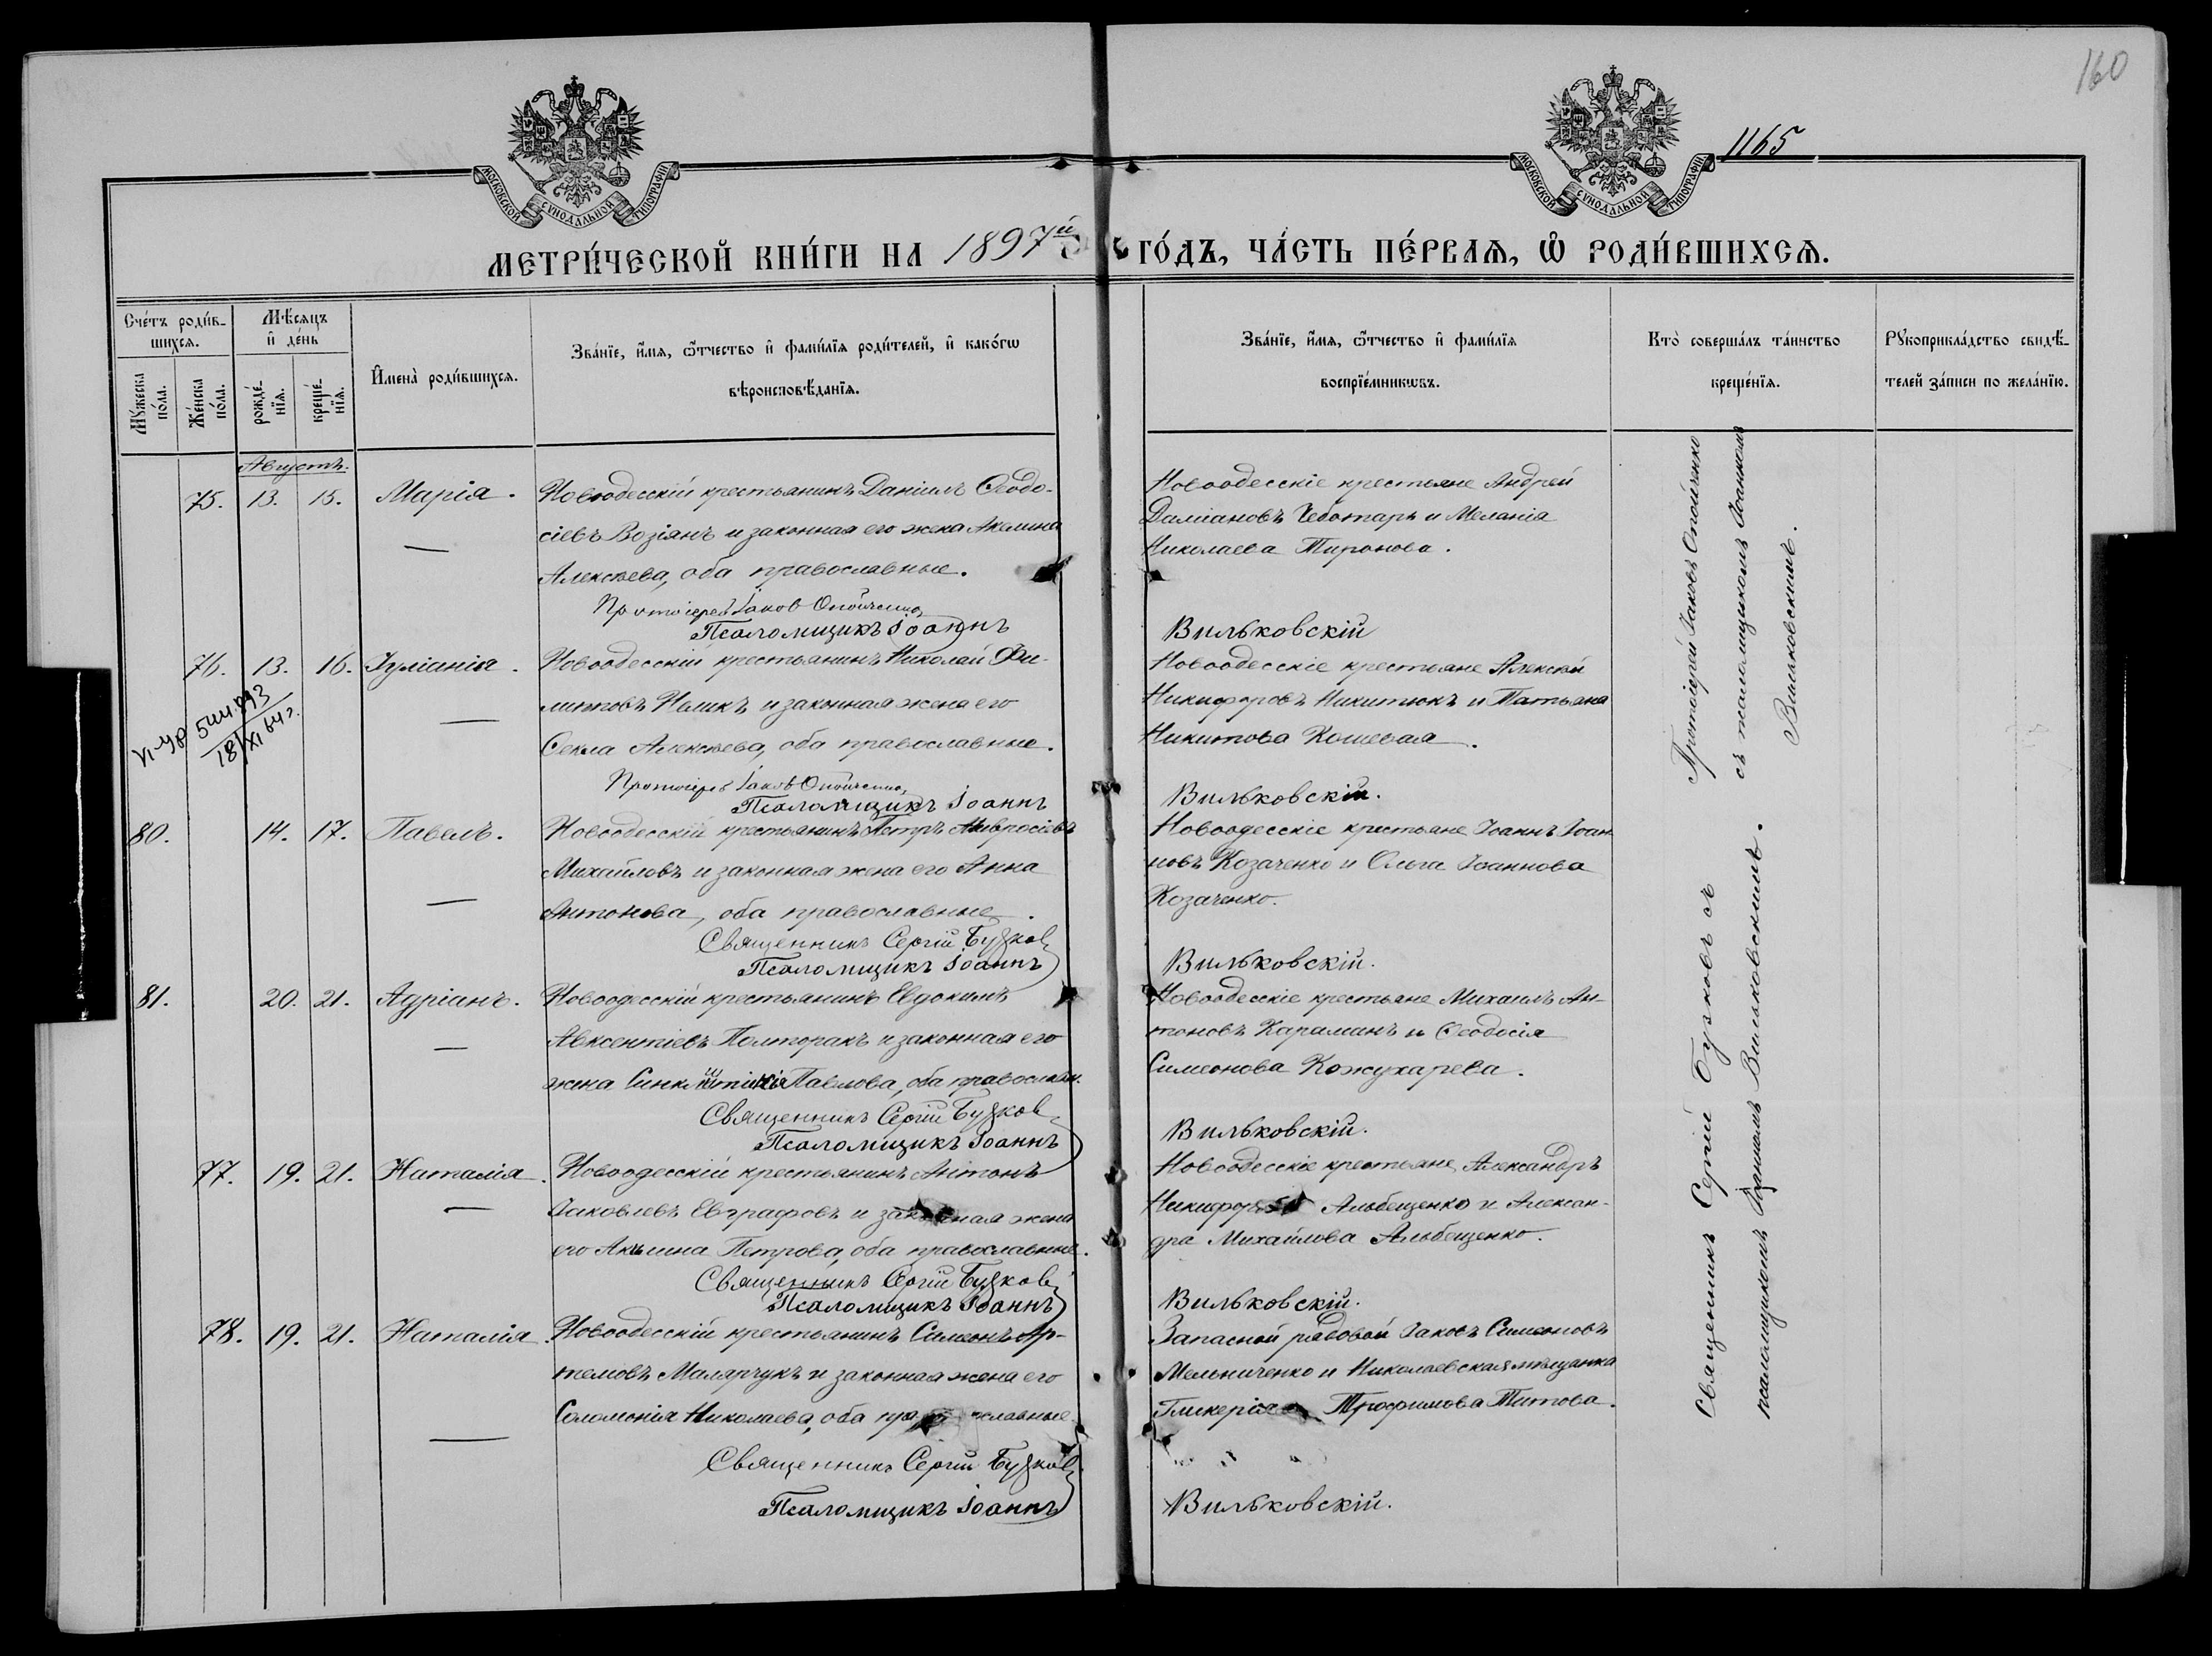 160
1165
МОСКОВСКОЙ СѴНОДАЛЬНОЙ ТИПОГРАФІИ
МОСКОВСКОЙ СѴНОДАЛЬНОЙ ТИПОГРАФІИ
МЕТРИ́ЧЕСКОЙ КНИ́ГИ НА 1897й ГО́ДЪ, ЧА́СТЬ ПЕ́РВАѦ, Ѡ҆ РОДИ́ВШИХСѦ.
Сче́тъ роди́в-
шихсѧ.
Мѣ́сѧцъ
и҆ де́нь
Мꙋ́жеска по́ла.
Же́нска по́ла.
рожде́-
нїѧ.
креще́-
нїѧ.
И҆мена̀ роди́вшихсѧ.
Зва́нїе, и҆́мѧ, ѻ҆́тчество и҆ фами́лїѧ роди́телей, и҆ како́гѡ
вѣроисповѣ́данїѧ.
Зва́нїе, и҆́мѧ, ѻ҆́тчество и҆ фами́лїѧ
воспрїе́мникѡвъ.
Кто̀ соверша́лъ та́инство
креще́нїѧ.
Рꙋкоприкла́дство свидѣ́-
телей за́писи по жела́нїю.
Августъ.
75. 13. 15. Марія. Новоодесскій крестьянинъ Даніилъ Ѳеодо-
сіевъ Возіянъ и законная его жена Акилина
Алексѣева, оба православные.
Протоіерей Іаковъ Опойченко
Псаломщикъ Іоаннъ
Новоодесскіе крестьяне Андрей
Даміановъ Чеботарь и Меланія
Николаева Тиронова.
Вильковскій
76. 13. 16. Іуліанія. Новоодесскій крестьянинъ Николай Фи-
липповъ Немикъ и законная жена его
Ѳекла Алексѣева, оба православные.
Протоіерей Іаковъ Опойченко
Псаломщикъ Іоаннъ
VI-УР 544893
18/XI 64г.
Новоодесскіе крестьяне Алексѣй
Никифоровъ Никитюкъ и Татьяна
Никитова Кошевая.
Вильковскій.
80. 14. 17. Павелъ. Новоодесскій крестьянинъ Петръ Амвросіевъ
Михайловъ и законная жена его Анна
Антонова, оба православные.
Священникъ Сергій Бузковъ
Псаломщикъ Іоаннъ
Новоодесскіе крестьяне Іоаннъ Іоан
новъ Козаченко и Ольга Іоаннова
Козаченко.
Вильковскій.
81. 20. 21. Адріанъ. Новоодесскій крестьянинъ Евдокимъ
Авксентіевъ Полторакъ и законная его
жена Павлова, оба православн.
Священникъ Сергій Бузковъ
Псаломщикъ Іоаннъ
Новоодесскіе крестьяне Михаилъ Ан-
тоновъ Караманъ и Ѳеодосія
Симеонова Кожухарева.
Вильковскій.
77. 19. 21. Наталія. Новоодесскій крестьянинъ Антонъ
Іаковлевъ Евграфовъ и законная жена
его Акилина Петрова, оба православные.
Священникъ Сергій Бузковъ
Псаломщикъ Іоаннъ
Новоодесскіе крестьяне Александръ
Альбещенко и Алексан-
дра Михайлова Альбещенко.
Вильковскій.
78. 19. 21. Наталія. Новоодесскій крестьянинъ Симеонъ Ар-
темовъ Малярчукъ и законная жена его
Соломонія Николаева, оба православные.
Священникъ Сергій Бузковъ
Псаломщикъ Іоаннъ
Запасной рядовой Іаковъ Симеоновъ
Мельниченко и Николаевская мѣщанка
Гликерія Трофимова Титова.
Вильковскій.
Протоіерей Іаковъ Опойченко
съ псаломщикомъ Іоанномъ
Вильковскимъ.
Священникъ Сергій Бузковъ съ
псаломщикомъ Іоанномъ Вильковскимъ.